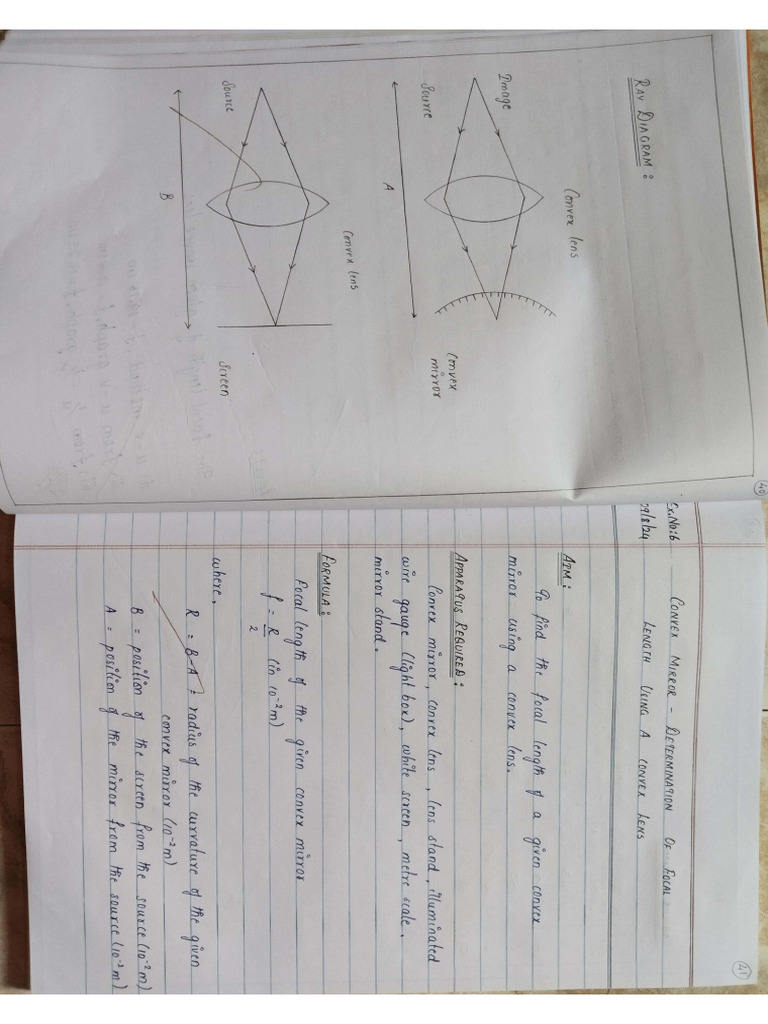 40
RAY DIAGRAM :
Convex lens
Image
Source
Convex
mirror
A
Convex lens
Source
Screen
B
41
Ex.No:6
09/8/24
CONVEX MIRROR - DETERMINATION OF FOCAL
LENGTH USING A CONVEX LENS
AIM:
To find the focal length of a given convex
mirror using a convex lens.
APPARATUS REQUIRED :
Convex mirror, convex lens, lens stand, illuminated
wire gauge (light box), white screen, metre scale,
mirror stand.
FORMULA :
Focal length of the given convex mirror
f = R/2 (in 10⁻² m)
where,
R = B-A = radius of the curvature of the given
convex mirror (10⁻² m)
B = position of the screen from the source (10⁻² m)
A = position of the mirror from the source (10⁻² m)